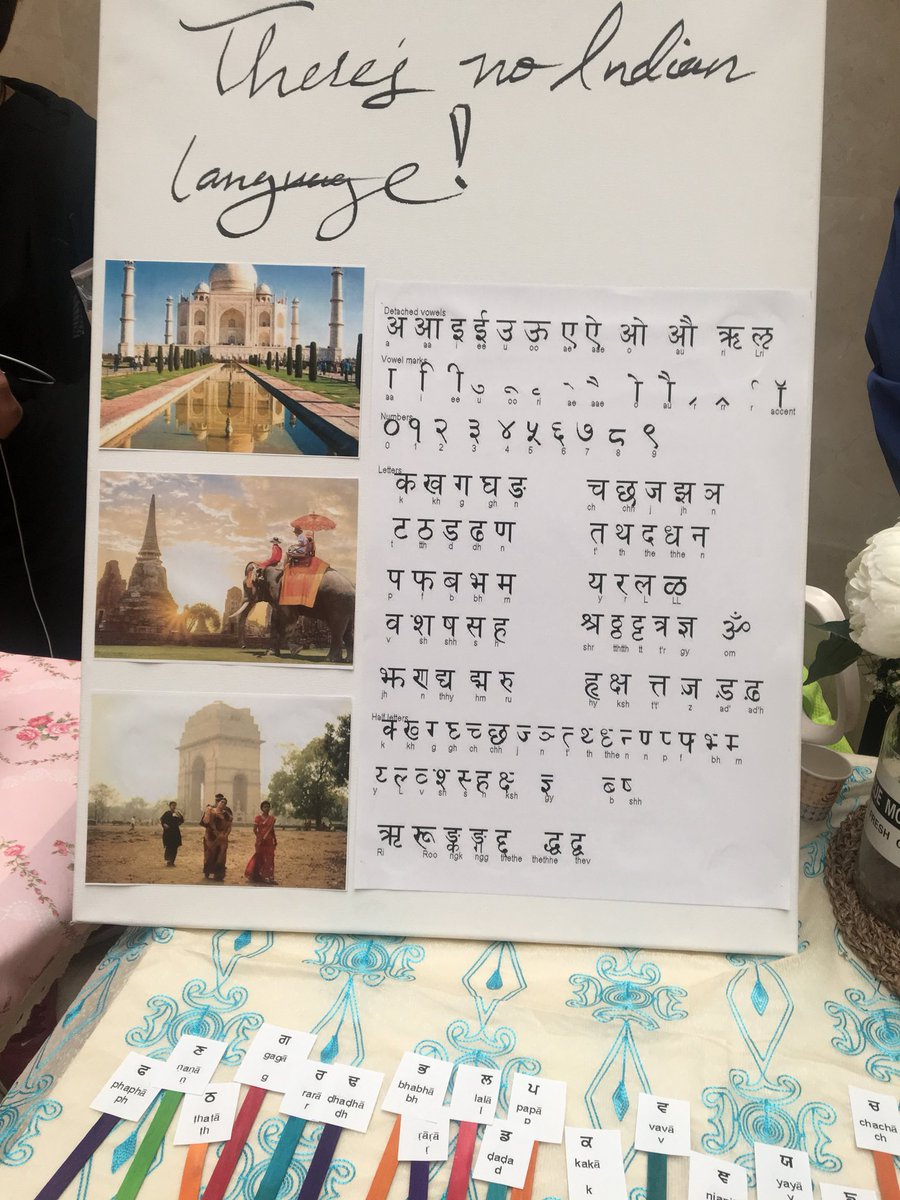 There's no Indian
language!
Detached vowels
अ आ इ ई उ ऊ ए ऐ ओ औ ऋ ऌ
a aa i ee u oo ae aae o au ri Lri
Vowel marks
aa i ee u oo ri ae aae o au r r r accent
Numbers
० १ २ ३ ४ ५ ६ ७ ८ ९
0 1 2 3 4 5 6 7 8 9
Letters
क ख ग घ ङ च छ ज झ ञ
k kh g gh n ch chh j jh n
ट ठ ड ढ ण त थ द ध न
t tth d dh n t' th the thhe n
प फ ब भ म य र ल ळ
p f b bh m y r L LL
व श ष स ह श्र ठ्ठ ट्ट त्र ज्ञ ॐ
v sh shh s h shr tthtth tt t'r gy om
झ ण द्य ह्म रु हृ क्ष त्त ज़ ड़ ढ़
jh n thhy hm ru hy ksh t't' z ad' ad'h
Half letters
k kh g gh ch chh j n t' th thhe n n p f bh m
y L v sh s h ksh gy b shh
ऋ रू ङ्क ङ्ग द्द द्ध द्व
Ri Roo ngk ngg thethe thethhe thev
ਫ
phaphā
ph
ਣ
ṇanā
ṇ
ਠ
ṭhaṭā
ṭh
ਗ
gagā
g
ਰ
rarā
r
ਢ
ḍhaḍhā
ḍh
ਭ
bhabhā
bh
ṛāṛā
ṛ
ਲ
lalā
l
ਡ
ḍaḍa
ḍ
ਪ
papā
p
ਕ
kakā
k
ਵ
vavā
v
ਞ
ਯ
yayā
y
ਚ
chachā
ch